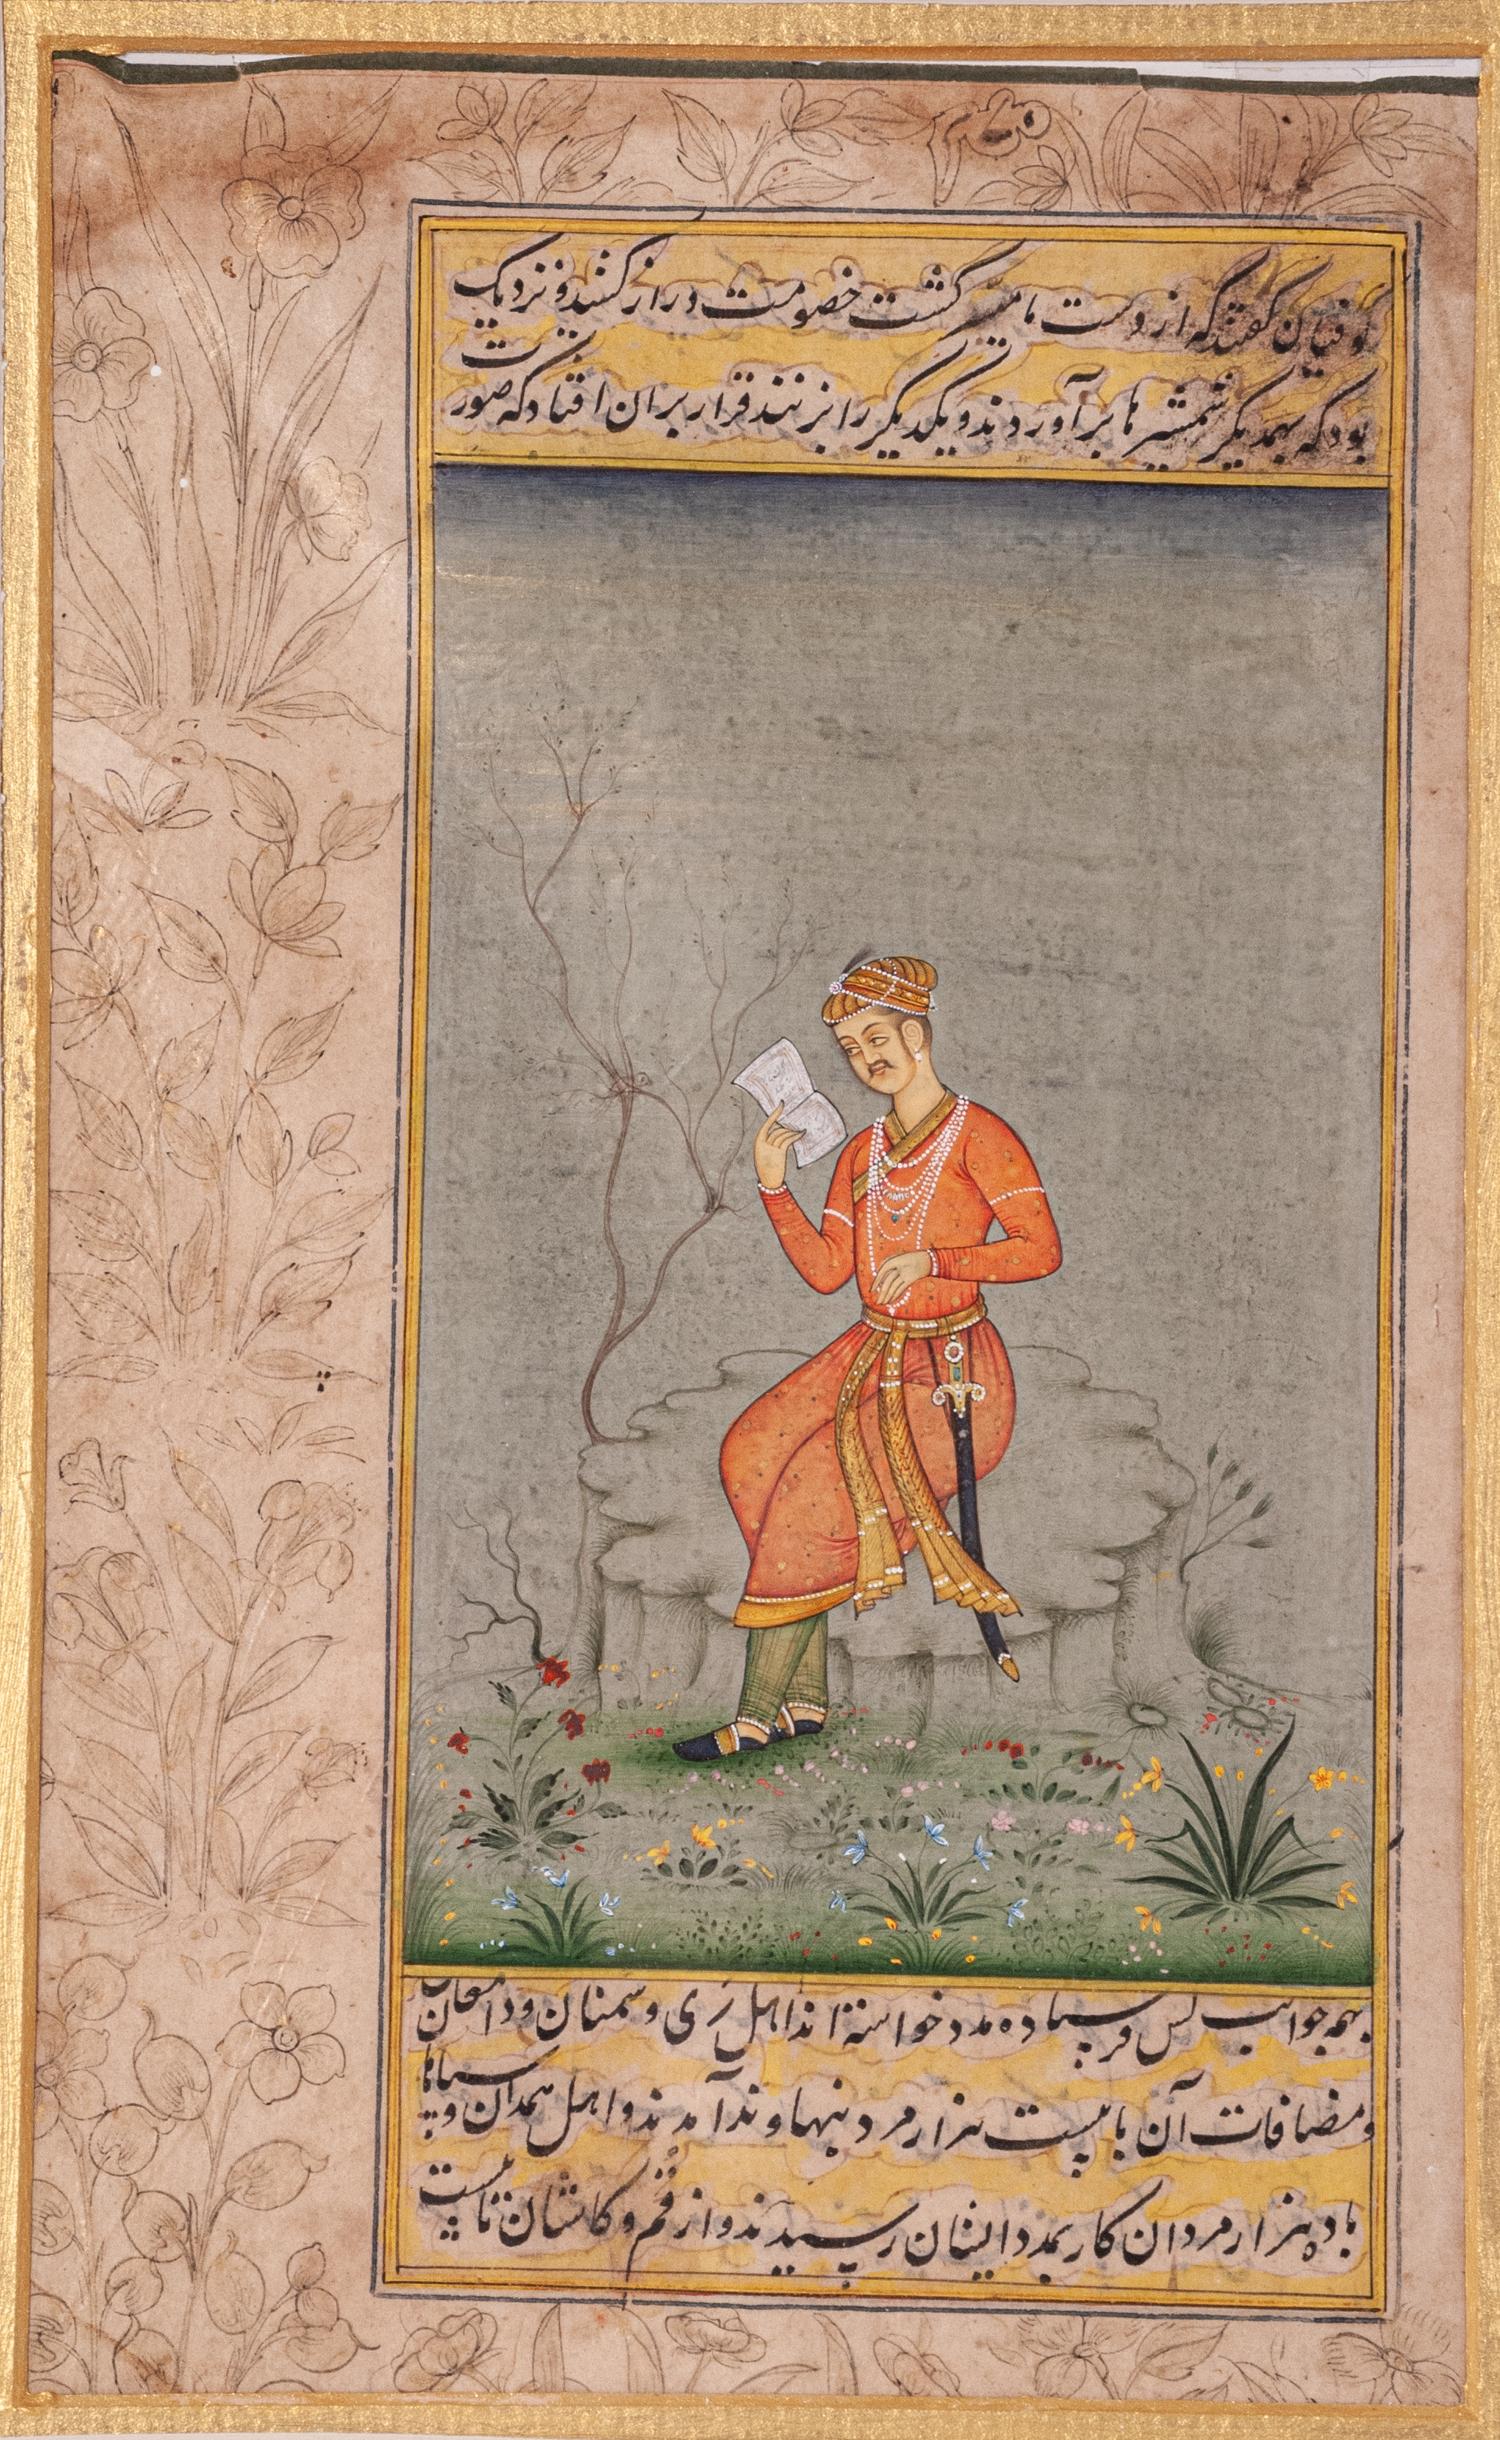 کوفیان گفتند که از دست ما میسر گشت خصومت دراز کشید و نزدیک
بود که بهمدیگر شمشیر ها برآوردند و یکدیگر را بزنند قرار بران افتاد که صورت
بهمه جوانب کس فرستاده مدد خواسته اند اهل ری و سمنان و دامغان
و مضافات آن با بیست هزار مرد بنهاوند آمدند و اهل همدان و
با ده هزار مردان کار بمدد ایشان رسیدند و از قم و کاشان تا بیست